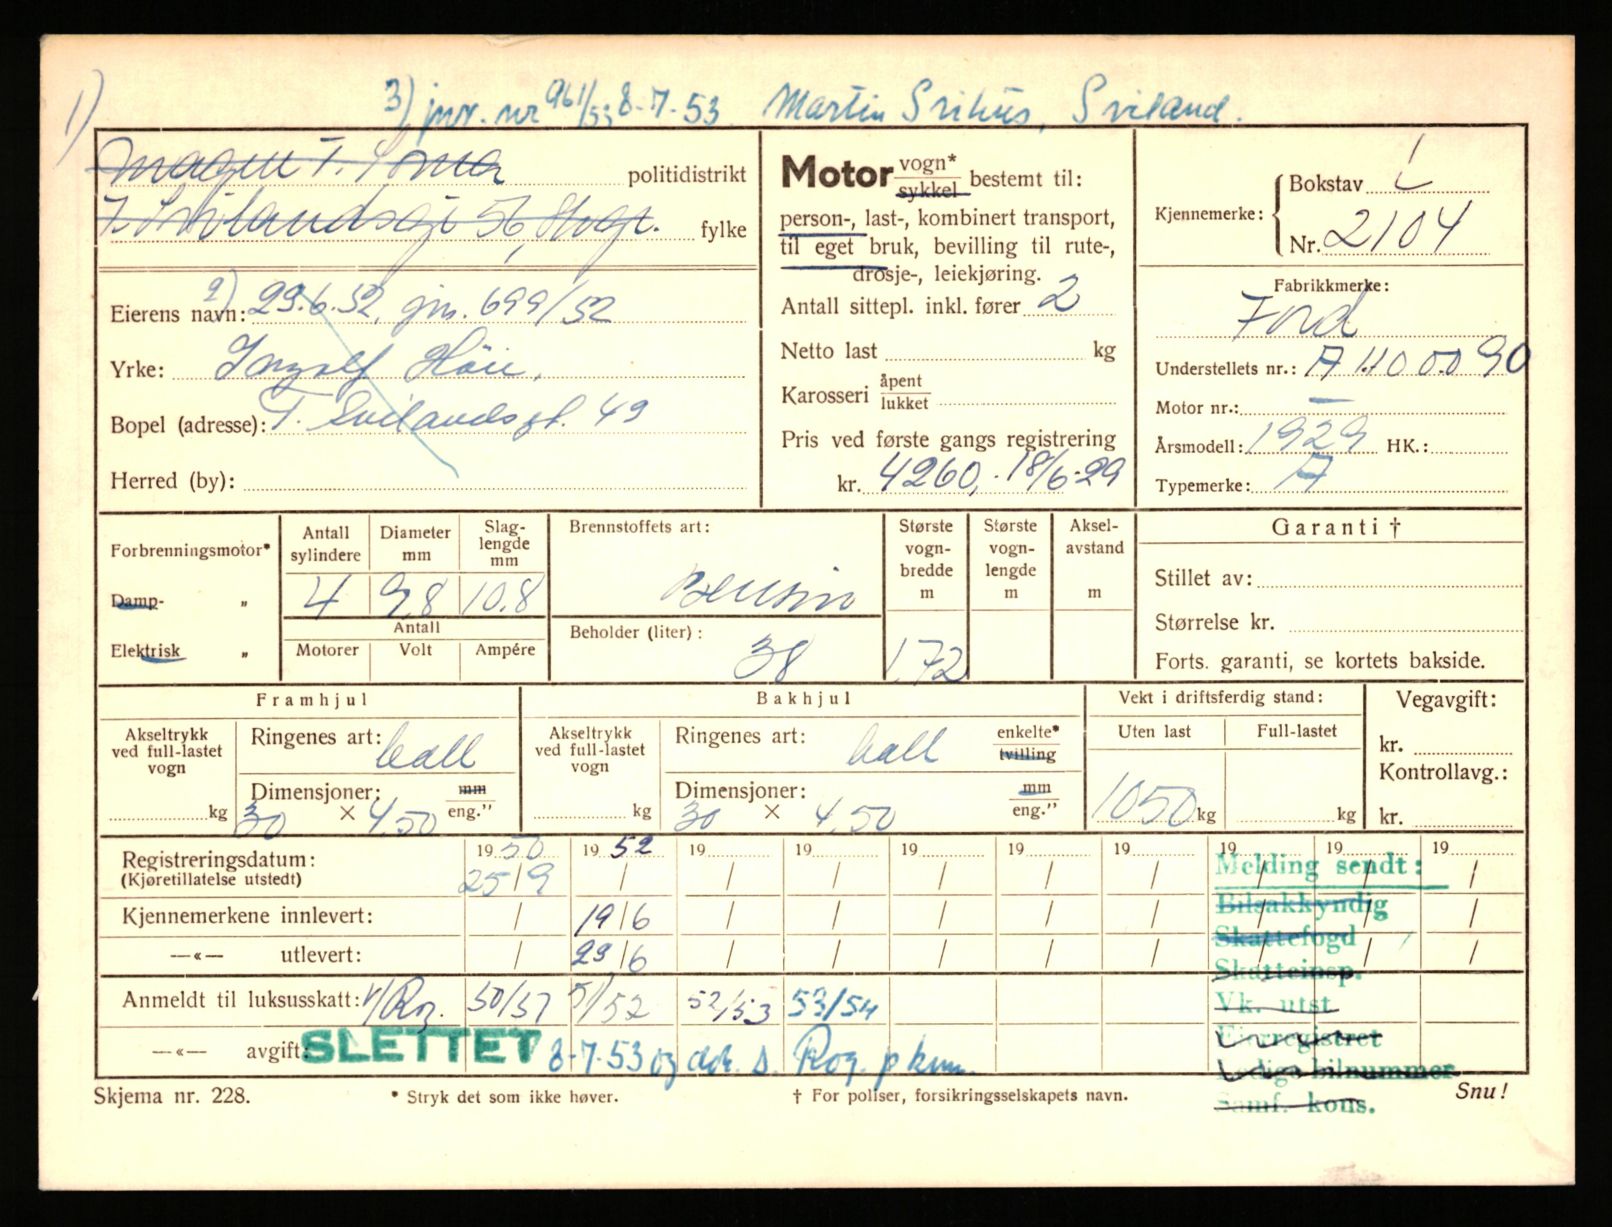 1)
3) jnr. nr 961/53 8-7-53 Martin Svihus, Sviland.
T. Soma politidistrikt
T. Svilandsgt 56, fylke
Eierens navn: 2) 29.6.52, jnr. 699/52
Yrke: Ingolf Höie,
Bopel (adresse): T. Svilandsgt. 49
Herred (by):
Motor vogn* sykkel bestemt til:
person-, last-, kombinert transport,
til eget bruk, bevilling til rute-,
drosje-, leiekjøring.
Antall sittepl. inkl. fører 2
Netto last kg
Karosseri åpent lukket
Pris ved første gangs registrering
kr. 4260,- 18/6-29
Kjennemerke: Bokstav L
Nr. 2104
Fabrikkmerke:
Ford
Understellets nr.: A
Motor nr.: —
Årsmodell: 1929 HK.:
Typemerke: A
Forbrenningsmotor*
Damp- „
Elektrisk „
Antall sylindere Diameter mm Slaglengde mm
4 9,8 10.8
Antall
Motorer Volt Ampére
Brennstoffets art:
Bensin
Beholder (liter):
38
Største vognbredde m
172
Største vognlengde m
Akselavstand m
Garanti †
Stillet av:
Størrelse kr.
Forts. garanti, se kortets bakside.
Framhjul
Akseltrykk ved full-lastet vogn kg
Ringenes art: ball
Dimensjoner: mm
30 × 4,50 eng."
Bakhjul
Akseltrykk ved full-lastet vogn kg
Ringenes art: ball enkelte* tvilling
Dimensjoner: mm
30 × 4,50 eng."
Vekt i driftsferdig stand:
Uten last Full-lastet
1050 kg kg
Vegavgift:
kr.
Kontrollavg.:
kr.
19 50 19 52 19 19 19 19 19 19 19 19
Registreringsdatum: 25/9 / / / / / / / / /
(Kjøretillatelse utstedt)
Kjennemerkene innlevert: / 19/6 / / / / / / / /
—«— utlevert: / 29/6 / / / / / / / /
Anmeldt til luksusskatt: 50/51 51/52 52/53 53/54
—«— avgift: SLETTET 8-7-53 og Rog.
Melding sendt:
Bilsakkyndig
Skattefogd
Skatteinsp.
Vk. utst.
Eierregistret
Ledige bilnummer
Samf. kons.
Skjema nr. 228.
* Stryk det som ikke høver.
† For poliser, forsikringsselskapets navn.
Snu!